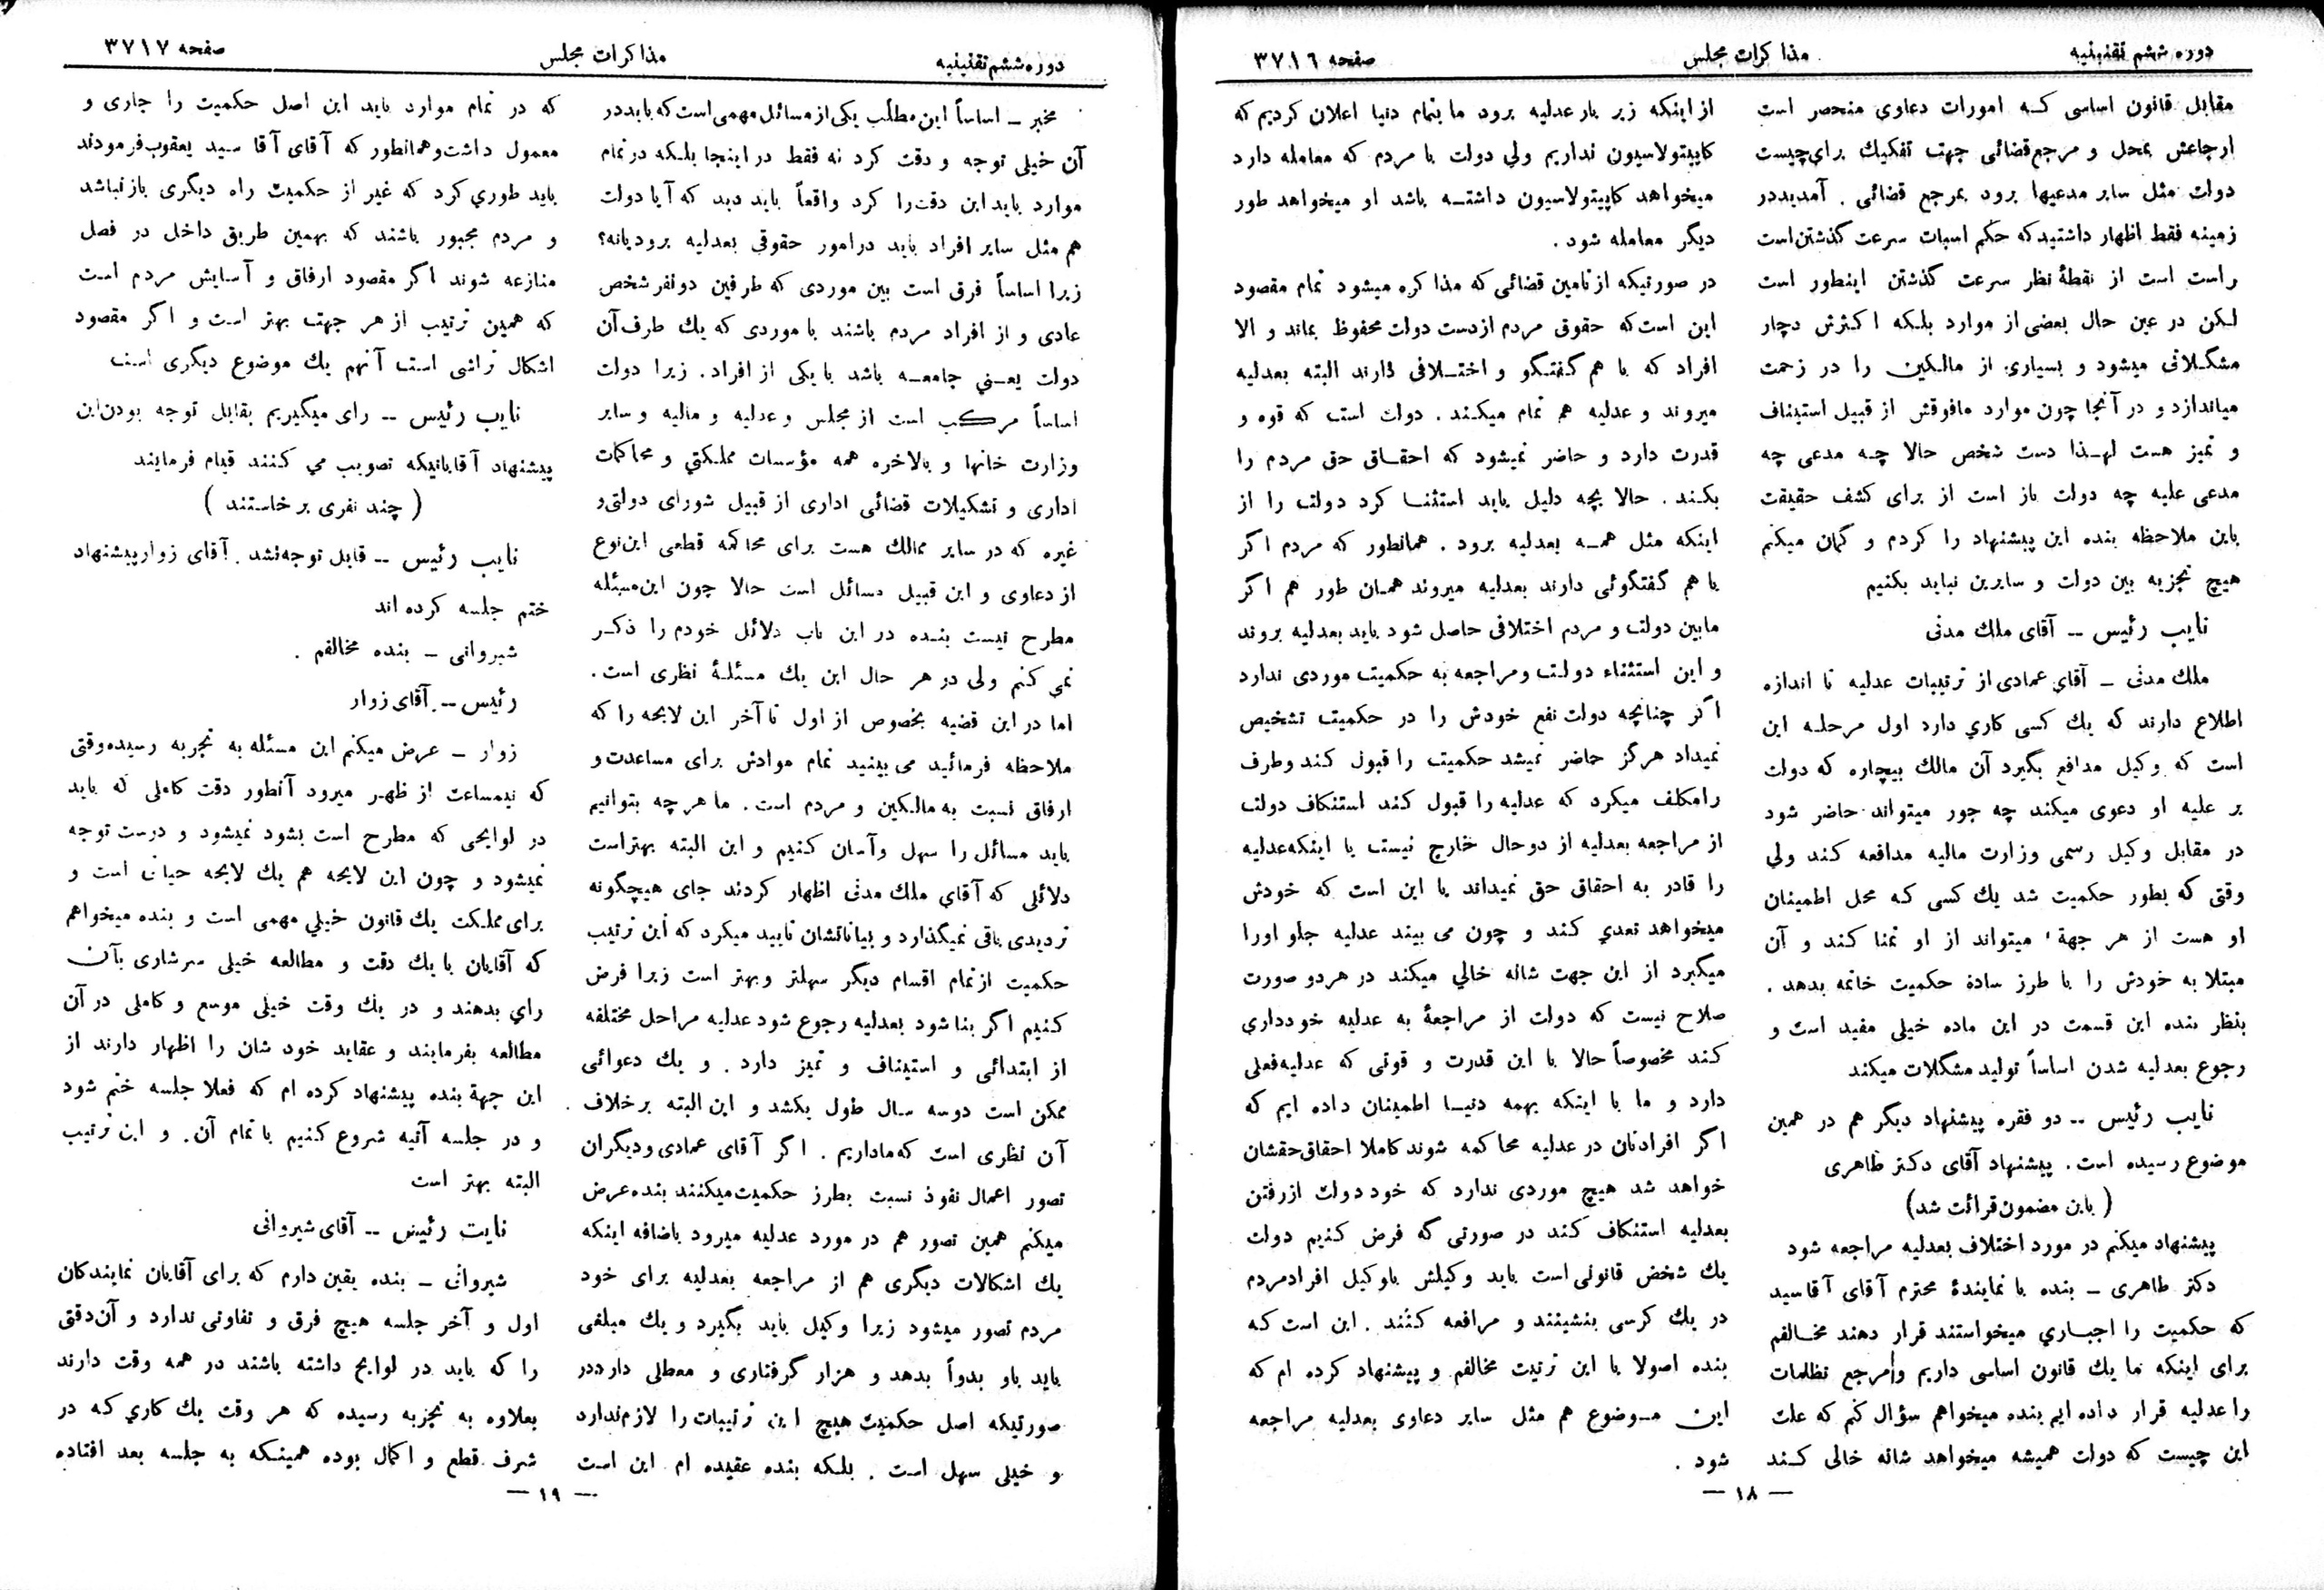 دوره ششم تقنینیه
مذاکرات مجلس
صفحه ۳۷۱٦
مقابل قانون اساسی که امورات دعاوی منحصر است
ارجاعش بمحل و مرجع قضائی جهت تفکیك برای چیست
دولت مثل سایر مدعیها برود بمرجع قضائی . آمدیددر
زمینه فقط اظهار داشتید که حکم اسبات سرعت گذشتن است
راست است از نقطهٔ نظر سرعت گذشتن اینطور است
لکن در عین حال بعضی از موارد بلکه اکثرش دچار
مشگلاتی میشود و بسیاری از مالکین را در زحمت
میاندازد و در آنجا چون موارد مافوقش از قبیل استیناف
و تمیز هست لهذا دست شخص حالا چه مدعی چه
مدعی علیه چه دولت باز است از برای کشف حقیقت
باین ملاحظه بنده این پیشنهاد را کردم و گمان میکنم
هیچ تجزیه بین دولت و سایرین نباید بکنیم
نایب رئیس -- آقای ملك مدنی
ملك مدنی - آقای عمادی از ترتیبات عدلیه تا اندازه
اطلاع دارند که یك کسی کاری دارد اول مرحله این
است که وکیل مدافع بگیرد آن مالك بیچاره که دولت
بر علیه او دعوی میکند چه جور میتواند حاضر شود
در مقابل وکیل رسمی وزارت مالیه مدافعه کند ولی
وقتی که بطور حکمیت شد یك کسی که محل اطمینان
او هست از هر جهة میتواند از او تمنا کند و آن
مبتلا به خودش را با طرز سادهٔ حکمیت خاتمه بدهد .
بنظر بنده این قسمت در این ماده خیلی مفید است و
رجوع بعدلیه شدن اساساً تولید مشگلات میکند
نایب رئیس -- دو فقره پیشنهاد دیگر هم در همین
موضوع رسیده است . پیشنهاد آقای دکتر طاهری
( باین مضمون قرائت شد)
پیشنهاد میکنم در مورد اختلاف بعدلیه مراجعه شود
دکتر طاهری - بنده با نمایندهٔ محترم آقای آقاسید
که حکمیت را اجباری میخواستند قرار دهند مخالفم
برای اینکه ما یك قانون اساسی داریم و مرجع تظلمات
را عدلیه قرار داده ایم بنده میخواهم سؤال کنم که علت
این چیست که دولت همیشه میخواهد شانه خالی کند
از اینکه زیر بار عدلیه برود ما بتمام دنیا اعلان کردیم که
کاپیتولاسیون نداریم ولی دولت با مردم که معامله دارد
میخواهد کاپیتولاسیون داشته باشد او میخواهد طور
دیگر معامله شود .
در صورتیکه از تامین قضائی که مذاکره میشود تمام مقصود
این است که حقوق مردم از دست دولت محفوظ بماند و الا
افراد که با هم گفتگو و اختلافی دارند البته بعدلیه
میروند و عدلیه هم تمام میکند . دولت است که قوه و
قدرت دارد و حاضر نمیشود که احقاق حق مردم را
بکند . حالا بچه دلیل باید استثنا کرد دولت را از
اینکه مثل همه بعدلیه برود . همانطور که مردم اگر
با هم گفتگوئی دارند بعدلیه میروند همان طور هم اگر
مابین دولت و مردم اختلافی حاصل شود باید بعدلیه بروند
و این استثناء دولت و مراجعه به حکمیت موردی ندارد
اگر چنانچه دولت نفع خودش را در حکمیت تشخیص
نمیداد هرگز حاضر نمیشد حکمیت را قبول کند وطرف
رامکلف میکرد که عدلیه را قبول کند استنکاف دولت
از مراجعه بعدلیه از دو حال خارج نیست یا اینکه عدلیه
را قادر به احقاق حق نمیداند یا این است که خودش
میخواهد تعدی کند و چون می بیند عدلیه جلو اورا
میگیرد از این جهت شانه خالی میکند در هر دو صورت
صلاح نیست که دولت از مراجعهٔ به عدلیه خودداری
کند مخصوصاً حالا با این قدرت و قوتی که عدلیه فعلی
دارد و ما با اینکه بهمه دنیا اطمینان داده ایم که
اگر افرادتان در عدلیه محاکمه شوند کاملا احقاق حقشان
خواهد شد هیچ موردی ندارد که خود دولت ازرفتن
بعدلیه استنکاف کند در صورتی که فرض کنیم دولت
یك شخص قانونی است باید وکیلش باوکیل افراد مردم
در یك کرسی بنشینند و مرافعه کنند . این است که
بنده اصولا با این ترتیت مخالفم و پیشنهاد کرده ام که
این موضوع هم مثل سایر دعاوی بعدلیه مراجعه
شود .
— ۱۸ —
دوره ششم تقنینیه
مذاکرات مجلس
صفحه ۳۷۱۷
مخبر - اساساً این مطلب یکی از مسائل مهمی است که بایددر
آن خیلی توجه و دقت کرد نه فقط در اینجا بلکه در تمام
موارد باید این دقت را کرد واقعاً باید دید که آیا دولت
هم مثل سایر افراد باید درامور حقوقی بعدلیه برودیانه؟
زیرا اساساً فرق است بین موردی که طرفین دونفر شخص
عادی و از افراد مردم باشند با موردی که یك طرف آن
دولت یعنی جامعه باشد با یکی از افراد . زیرا دولت
اساساً مرکب است از مجلس و عدلیه و مالیه و سایر
وزارت خانها و بالاخره همه مؤسسات مملکتی و محاکمات
اداری و تشکیلات قضائی اداری از قبیل شورای دولتی و
غیره که در سایر ممالك هست برای محاکمه قطعی این نوع
از دعاوی و این قبیل مسائل است حالا چون این مسئله
مطرح نیست بنده در این باب دلائل خودم را ذکر
نمی کنم ولی در هر حال این یك مسئلهٔ نظری است .
اما در این قضیه بخصوص از اول تا آخر این لایحه را که
ملاحظه فرمائید می بینید تمام موادش برای مساعدت و
ارفاق نسبت به مالکین و مردم است . ما هر چه بتوانیم
باید مسائل را سهل و آسان کنیم و این البته بهتر است
دلائلی که آقای ملك مدنی اظهار کردند جای هیچگونه
تردیدی باقی نمیگذارد و بیاناتشان تایید میکرد که این ترتیب
حکمیت از تمام اقسام دیگر سهلتر و بهتر است زیرا فرض
کنیم اگر بنا شود بعدلیه رجوع شود عدلیه مراحل مختلفه
از ابتدائی و استیناف و تمیز دارد . و یك دعوائی
ممکن است دوسه سال طول بکشد و این البته برخلاف
آن نظری است که ما داریم . اگر آقای عمادی و دیگران
تصور اعمال نفوذ نسبت بطرز حکمیت میکنند بنده عرض
میکنم همین تصور هم در مورد عدلیه میرود باضافه اینکه
یك اشکالات دیگری هم از مراجعه بعدلیه برای خود
مردم تصور میشود زیرا وکیل باید بگیرد و یك مبلغی
باید باو بدواً بدهد و هزار گرفتاری و معطلی دارددر
صورتیکه اصل حکمیت هیچ این ترتیبات را لازم ندارد
و خیلی سهل است . بلکه بنده عقیده ام این است
که در تمام موارد باید این اصل حکمیت را جاری و
معمول داشت و همانطور که آقای آقا سید یعقوب فرمودند
باید طوری کرد که غیر از حکمیت راه دیگری باز نباشد
و مردم مجبور باشند که بهمین طریق داخل در فصل
منازعه شوند اگر مقصود ارفاق و آسایش مردم است
که همین ترتیب از هر جهت بهتر است و اگر مقصود
اشکال تراشی است آنهم یك موضوع دیگری است
نایب رئیس -- رای میگیریم بقابل توجه بودن این
پیشنهاد آقایانیکه تصویب می کنند قیام فرمایند
( چند نفری برخاستند )
نایب رئیس -- قابل توجه نشد . آقای زوار پیشنهاد
ختم جلسه کرده اند
شیروانی - بنده مخالفم .
رئیس -- آقای زوار
زوار - عرض میکنم این مسئله به تجربه رسیده وقتی
که نیمساعت از ظهر میرود آنطور دقت کاملی که باید
در لوایحی که مطرح است بشود نمیشود و درست توجه
نمیشود و چون این لایحه هم یك لایحه حیاتی است و
برای مملکت یك قانون خیلی مهمی است و بنده میخواهم
که آقایان با یك دقت و مطالعه خیلی سرشاری بآن
رای بدهند و در یك وقت خیلی موسع و کاملی در آن
مطالعه بفرمایند و عقاید خود شان را اظهار دارند از
این جهة بنده پیشنهاد کرده ام که فعلا جلسه ختم شود
و در جلسه آتیه شروع کنیم با تمام آن . و این ترتیب
البته بهتر است
نایت رئیس -- آقای شیروانی
شیروانی - بنده یقین دارم که برای آقایان نمایندگان
اول و آخر جلسه هیچ فرق و تفاوتی ندارد و آن دقتی
را که باید در لوایح داشته باشند در همه وقت دارند
بعلاوه به تجربه رسیده که هر وقت یك کاری که در
شرف قطع و اکمال بوده همینکه به جلسه بعد افتاده
— ۱۹ —